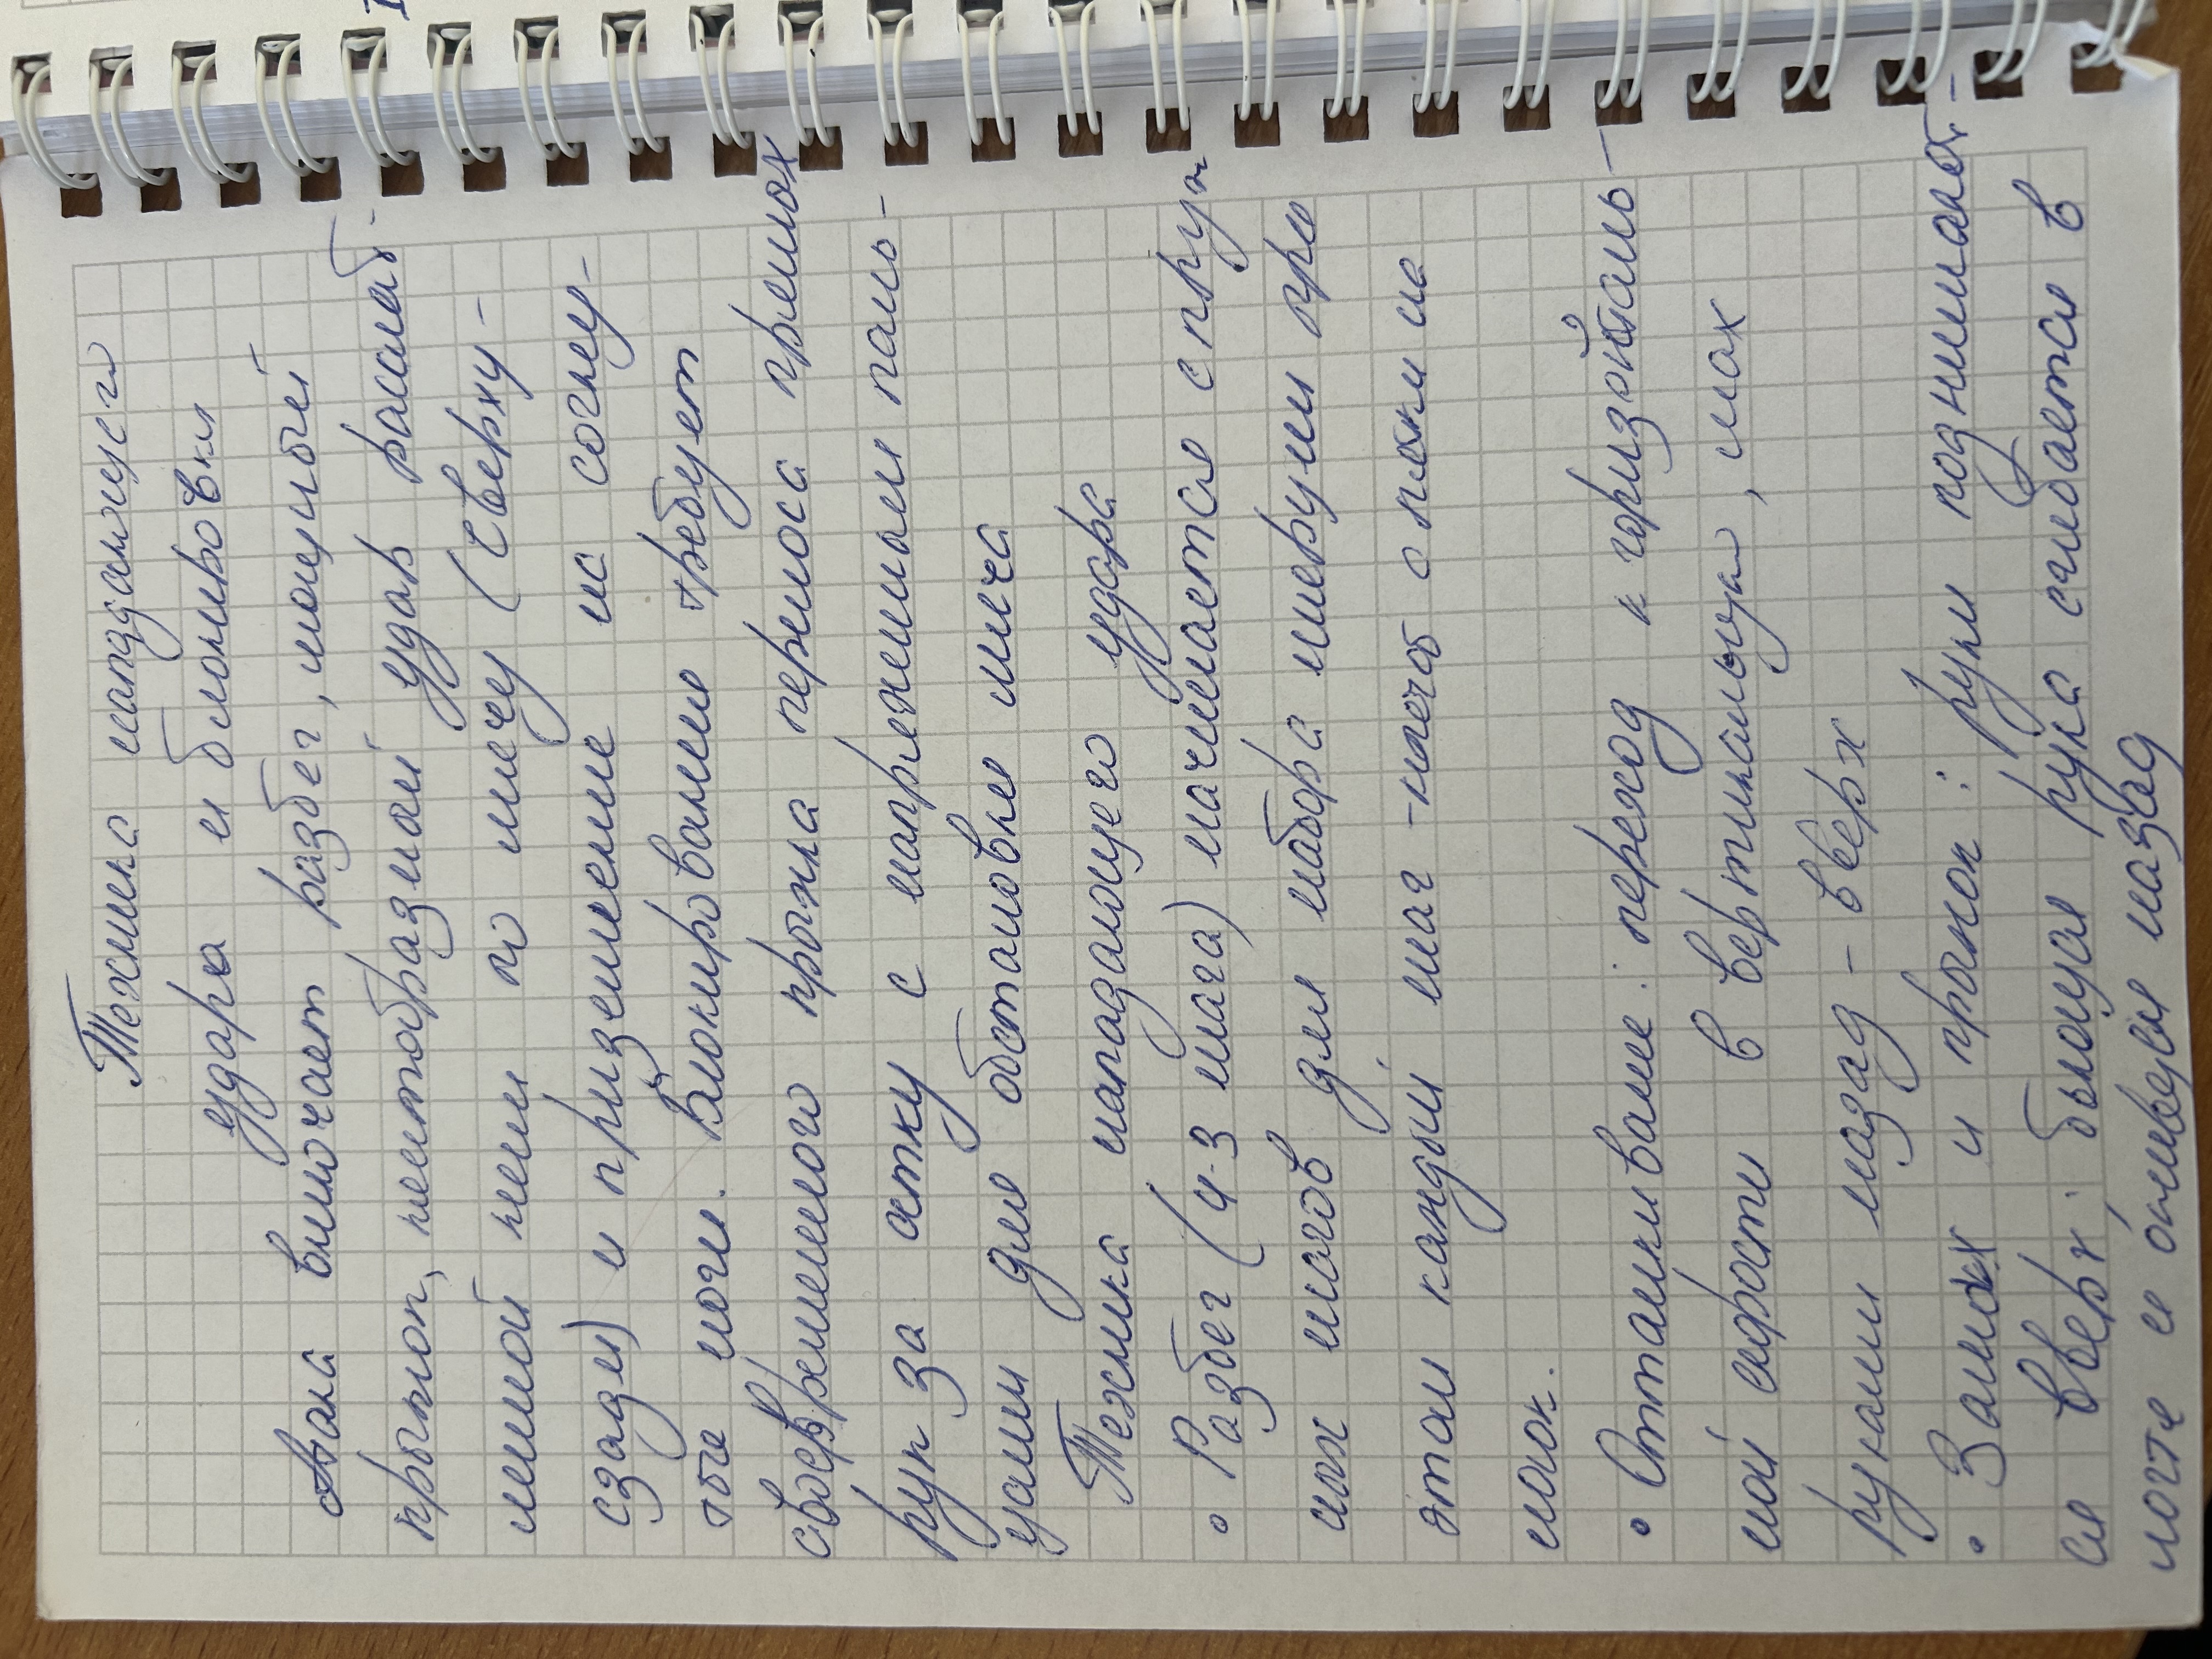 Техника нападающего
удара и блокировки
Атака включает разбег, мощный
прыжок, хлестобразный удар рассла-
по мячу (сверху-
сзади) и приземление на согну-
тые ноги. Блокирование требует
своевременного прыжка переноса прямых
рук за сетку с напряжением паль-
цами для остановки мяча
Техника нападающего удара
• Разбег (4-3 шага) начинается с
ных шагов для набора инерции при
этом каждый шаг с пятки на
носок.
• Отталкивание: переход к горизонталь-
ной скорости в вертикальную, мах
руками назад - вверх
• Замах и прыжок: руки поднимают-
ся вверх: бьющая рука сгибается в
локте и назад